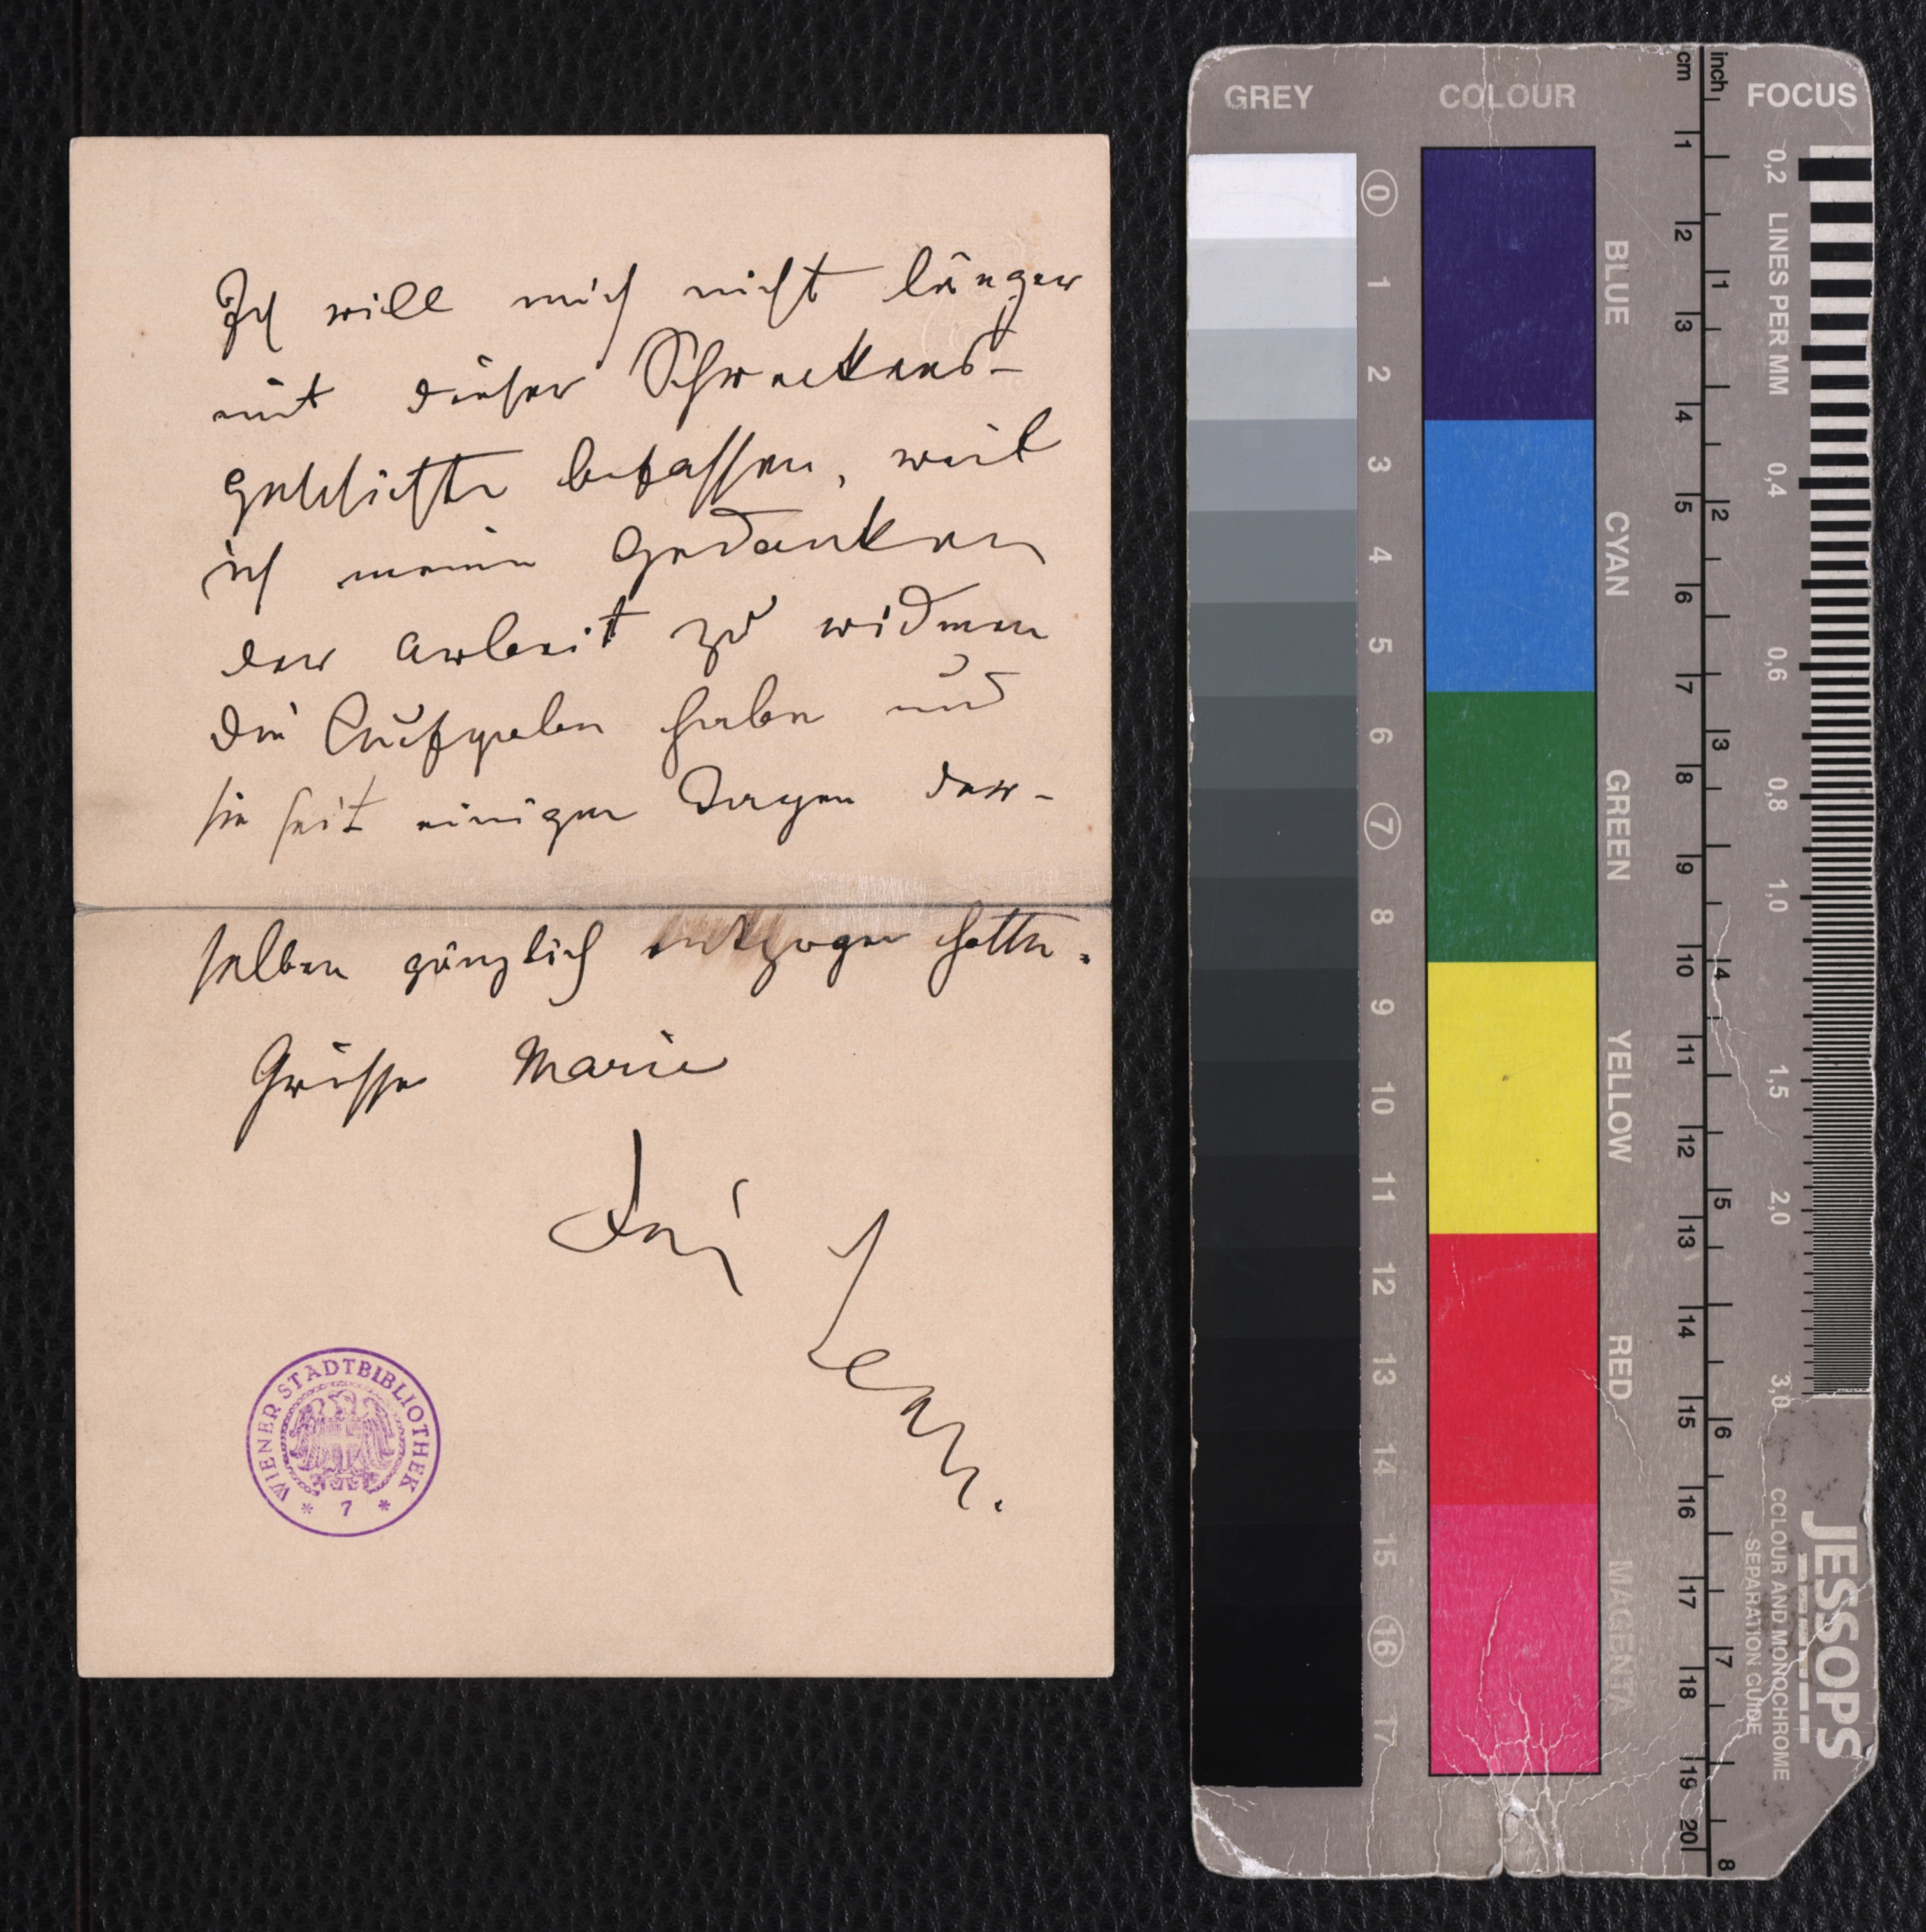 Ich will mich nicht länger
mit dieser Schreckens-
geschichte befassen, weil
ich meine Gedanken
der Arbeit zu widmen
die Aufgaben habe und
sie seit einigen Tagen der-
selben gänzlich entzogen hatte.
Grüsse Marie
Dei
Jean.
WIENER STADTBIBLIOTHEK
* 7 *
GREY COLOUR cm inch FOCUS
0 1 2 3 4 5 6 7 8 9 10 11 12 13 14 15 16 17
BLUE
CYAN
GREEN
YELLOW
RED
MAGENTA
1 2 3 4 5 6 7 8 9 10 11 12 13 14 15 16 17 18 19 20
1 2 3 4 5 6 7 8
0,2 LINES PER MM 0,4 0,6 0,8 1,0 1,5 2,0 3,0
COLOUR AND MONOCHROME
SEPARATION GUIDE
JESSOPS